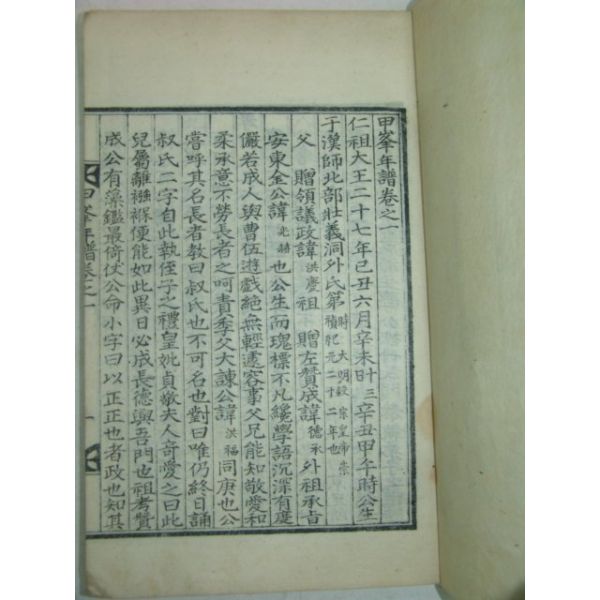 甲峯年譜卷之一
仁祖大王二十七年己丑六月辛未十三日辛丑甲午時公生
于漢師北部壯義洞外氏第時大明毅宗皇帝崇禎紀元二十二年也
父 贈領議政諱洪慶祖 贈左贊成諱德承外祖承旨
安東金公諱 也公生而瑰標不凡纔學語沉深有度
儼若成人與曹伍遊戲絶無輕遽容事父兄能知敬愛和
柔承意不勞長者之呵責季父大諫公諱洪福同庚也公
嘗呼其名長者教曰叔氏也不可名也對曰唯仍終日誦
叔氏二字自此執侄子之禮皇妣貞敬夫人奇愛之曰此
兒屬離襁褓便能如此異日必成長德興吾門也祖考贊
成公有藻鑑最倚伏公命小字曰以正正也者政也知其
甲峯年譜卷之一
一